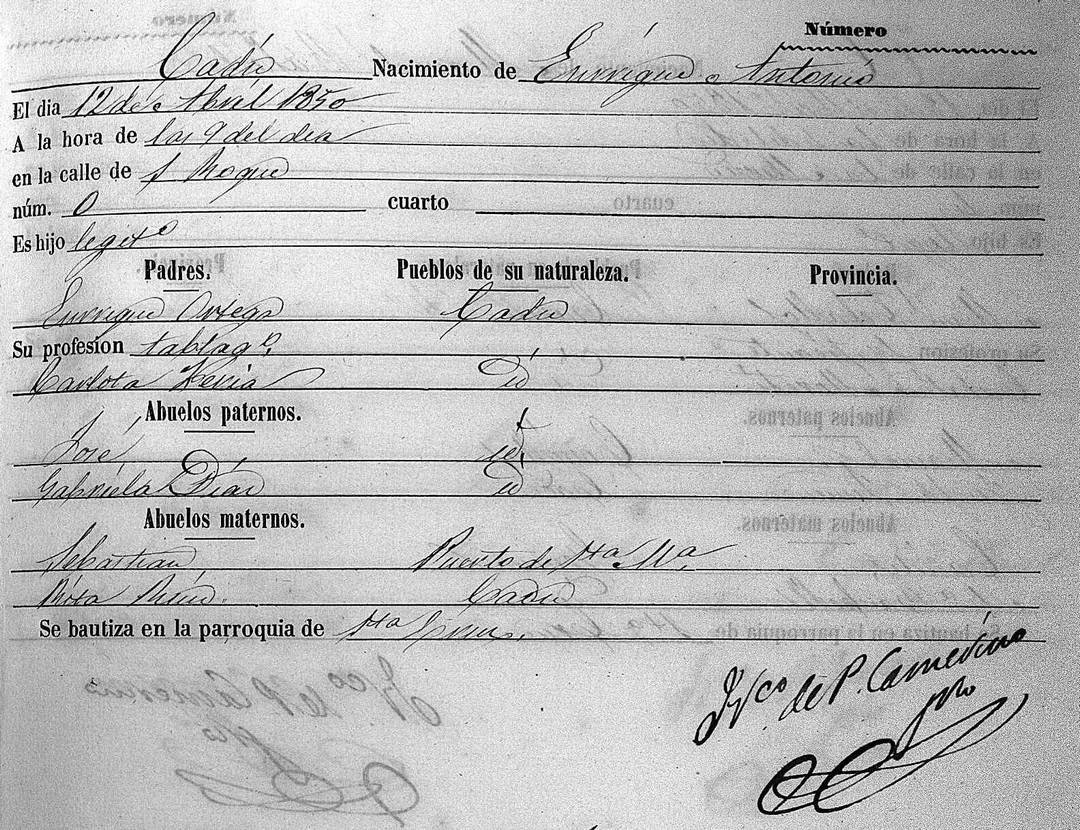 Número
Cadiz Nacimiento de Enrrique Antonio
El dia 12 de Abril 1850
A la hora de las 9 del dia
en la calle de S Roque
núm. 0 cuarto
Es hijo legitº
Padres. Pueblos de su naturaleza. Provincia.
Enrrique Ortega Cadiz
Su profesion tablagº.
Carlota Feria id
Abuelos paternos.
José id.
Gabriela Díaz id
Abuelos maternos.
Sebastian Puerto de Sta Mª.
Rosa Cadiz
Se bautiza en la parroquia de Sta Cruz.
Fco de P. Camerino
pbro